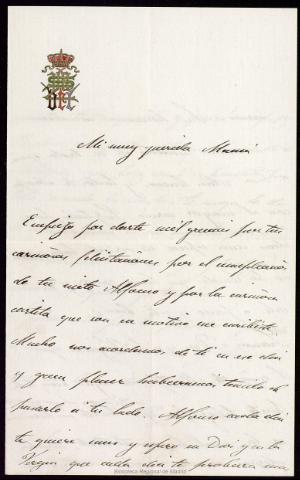 Mi muy querida Mamá
Empiezo por darte mil gracias por tus
cariñosas felicitaciones por el cumpleaños
de tu nieto Alfonso y por la cariñosa
cartita que con su motivo me escribiste.
Mucho nos acordamos de ti en ese día
y gran placer hubieramos tenido de
pasarlo a tu lado. Alfonso cada dia
te quiere mas y espero en Dios y en la
Virgen que cada dia te probara mas
Biblioteca Regional de Madrid